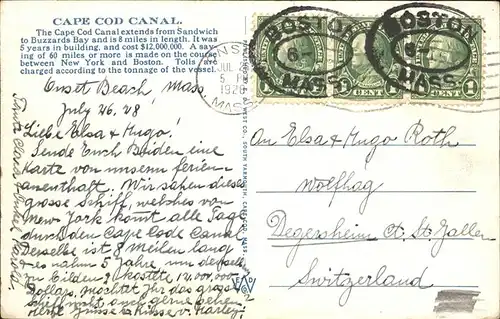 CAPE COD CANAL.
The Cape Cod Canal extends from Sandwich
to Buzzards Bay and is 8 miles in length. It was
5 years in building, and cost $12,000,000. A sav-
ing of 60 or more miles is made on the course
between New York and Boston. Tolls are
charged according to the tonnage of the vessel.
Onset Beach, Mass.
July 26, 28
Liebe Elsa & Hugo!
Sende Euch Beiden eine
Karte von unserm ferien-
aufenthalt. Wir sahen dieses
grosse Schiff, welches von
New York komt alle Tage
durch den Cape Code Canal
Derselbe ist 8 Meilen lang
& es nahm 5 Jahre um denselben
zu bilden & kostete 12.000,000
Dollars. möchtet Ihr das grosse
Schiff nicht auch gerne sehen
JUL
5
1928
MASS
BOSTON
MASS.
BOSTON
MASS.
CENT
1
An Elsa & Hugo Roth
Wolfhag
Degersheim Ct. St. Gallen
Switzerland